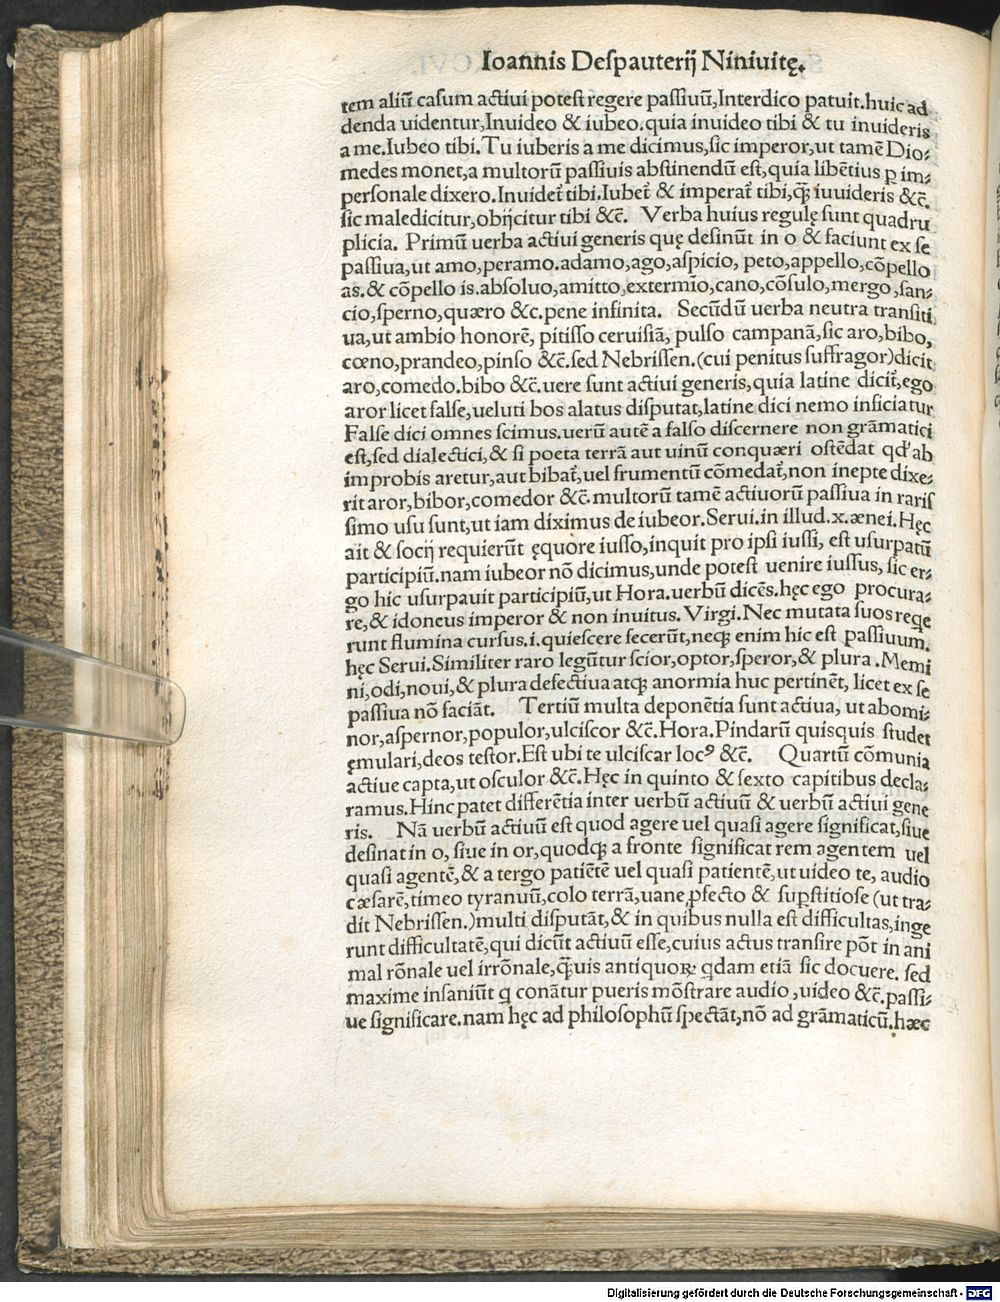 Ioannis Despauterij Niniuitę.
tem aliū casum actiui potest regere passiuū,Interdico patuit.huic ad
denda uidentur,Inuideo & iubeo.quia inuideo tibi & tu inuideris
a me.Iubeo tibi.Tu iuberis a me dicimus,sic imperor,ut tamē Dio⸗
medes monet,a multorū passiuis abstinendū est,quia libētius ꝑ im⸗
personale dixero.Inuidet̄ tibi.Iubet̄ & imperat̄ tibi,q̄ꝫ iuuideris &c̄.
sic maledicitur,obijcitur tibi &c̄. Verba huius regulę sunt quadru
plicia. Primū uerba actiui generis quę desinūt in o & faciunt ex se
passiua,ut amo,peramo.adamo,ago,aspicio, peto,appello,cōpello
as.& cōpello is.absoluo,amitto,extermīo,cano,cōsulo,mergo,san⸗
cio,sperno,quæro &c.pene infinita. Secūdū uerba neutra transiti
ua,ut ambio honorē, pitisso ceruisiā, pulso campanā,sic aro,bibo,
cœno,prandeo,pinso &c̄.sed Nebrissen.(cui penitus suffragor)dicit
aro,comedo.bibo &c̄.uere sunt actiui generis,quia latine dicit̄,ego
aror licet false,ueluti bos alatus disputat,latine dici nemo inficiatur
False dici omnes scimus.uerū autē a falso discernere non grāmatici
est,sed dialectici,& si poeta terrā aut uinū conquæri ostēdat qđ ab
improbis aretur,aut bibat̄,uel frumentū cōmedat̄,non inepte dixe⸗
rit aror,bibor,comedor &c̄.multorū tamē actiuorū passiua in raris
simo usu sunt,ut iam diximus de iubeor.Serui.in illud.x.ænei.Hęc
ait & socij requierūt ęquore iusso,inquit pro ipsi iussi, est usurpatū
participiū.nam iubeor nō dicimus,unde potest uenire iussus, sic er⸗
go hic usurpauit participiū,ut Hora.uerbū dicēs.hęc ego procura⸗
re,& idoneus imperor & non inuitus. Virgi.Nec mutata suos reqe
runt flumina cursus.i.quiescere fecerūt,neqꝫ enim hic est passiuum.
hęc Serui.Similiter raro legūtur scior,optor,speror,& plura .Memi
ni,odi,noui,& plura defectiua atqꝫ anormia huc pertinēt, licet ex se
passiua nō faciāt. Tertiū multa deponētia sunt actiua, ut abomi⸗
nor,aspernor,populor,ulciscor &c̄.Hora.Pindarū quisquis studet
ęmulari,deos testor.Est ubi te ulciscar locꝰ &c̄. Quartū cōmunia
actiue capta,ut osculor &c̄.Hęc in quinto & sexto capitibus decla⸗
ramus.Hinc patet differētia inter uerbū actiuū & uerbū actiui gene
ris. Nā uerbū actiuū est quod agere uel quasi agere significat,siue
desinat in o, siue in or,quodqꝫ a fronte significat rem agentem uel
quasi agentē,& a tergo patiētē uel quasi patientē,ut uideo te, audio
cæsarē,timeo tyranuū,colo terrā,uane ꝓfecto & suꝑstitiose (ut tra⸗
dit Nebrissen.)multi disputāt,& in quibus nulla est difficultas,inge
runt difficultatē,qui dicūt actiuū esse,cuius actus transire pōt in ani
mal rōnale uel irrōnale,q̄ꝫuis antiquoꝝ qdam etiā sic docuere. sed
maxime insaniūt q conātur pueris mōstrare audio ,uideo &c̄.passi⸗
ue significare.nam hęc ad philosophū spectāt,nō ad grāmaticū.hæc
Digitalisierung gefördert durch die Deutsche Forschungsgemeinschaft - DFG